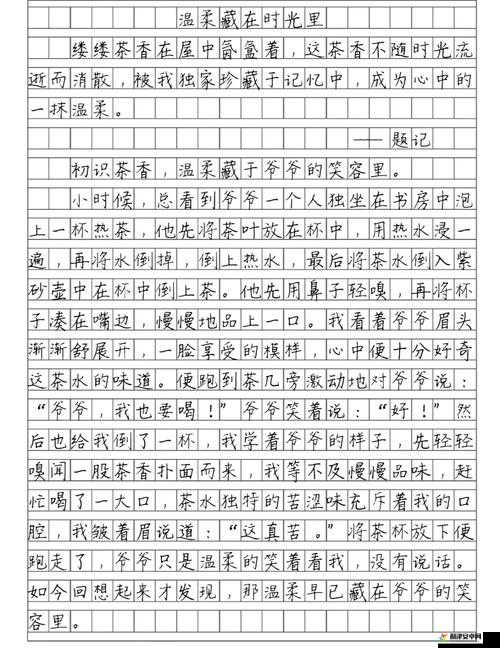 温柔藏在时光里
缕缕茶香在屋中氤氲着，这茶香不随时光流
逝而消散，被我独家珍藏于记忆中，成为心中的
一抹温柔。
——题记
初识茶香，温柔藏于爷爷的笑容里。
小时候，总看到爷爷一个人独坐在书房中泡
上一杯热茶，他先将茶叶放在杯中，用热水浸一
遍，再将水倒掉，倒上热水，最后将茶水倒入紫
砂壶中在杯中倒上茶。他先用鼻子轻嗅，再将杯
子凑在嘴边，慢慢地品上一口。我看着爷爷眉头
渐渐舒展开，一脸享受的模样，心中便十分好奇
这茶水的味道。便跑到茶几旁激动地对爷爷说：
“爷爷，我也要喝！”爷爷笑着说：“好！”然
后也给我倒了一杯，我学着爷爷的样子，先轻轻
嗅闻一股茶香扑面而来，我等不及慢慢品味，赶
忙喝了一大口，茶水独特的苦涩味充斥着我的口
腔，我皱着眉说道：“这真苦。”将茶杯放下便
跑走了，爷爷只是温柔的笑着看我，没有说话。
如今回想起来才发现，那温柔早已藏在爷爷的笑
容里。